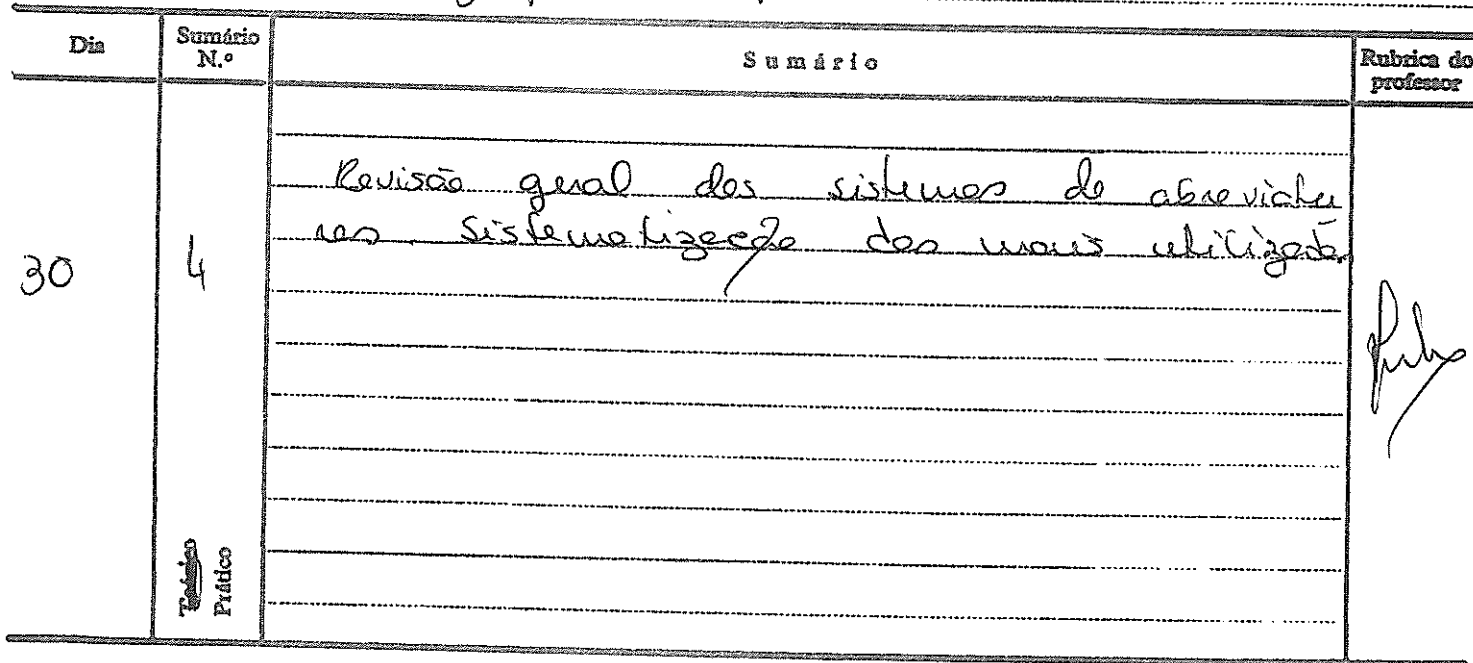 Dia
Sumário N.º
Sumário
Rubrica do professor
30
4
Revisão geral dos sistemas de abreviatu
ras sistematização dos mais utilizados
Teórico
Prático